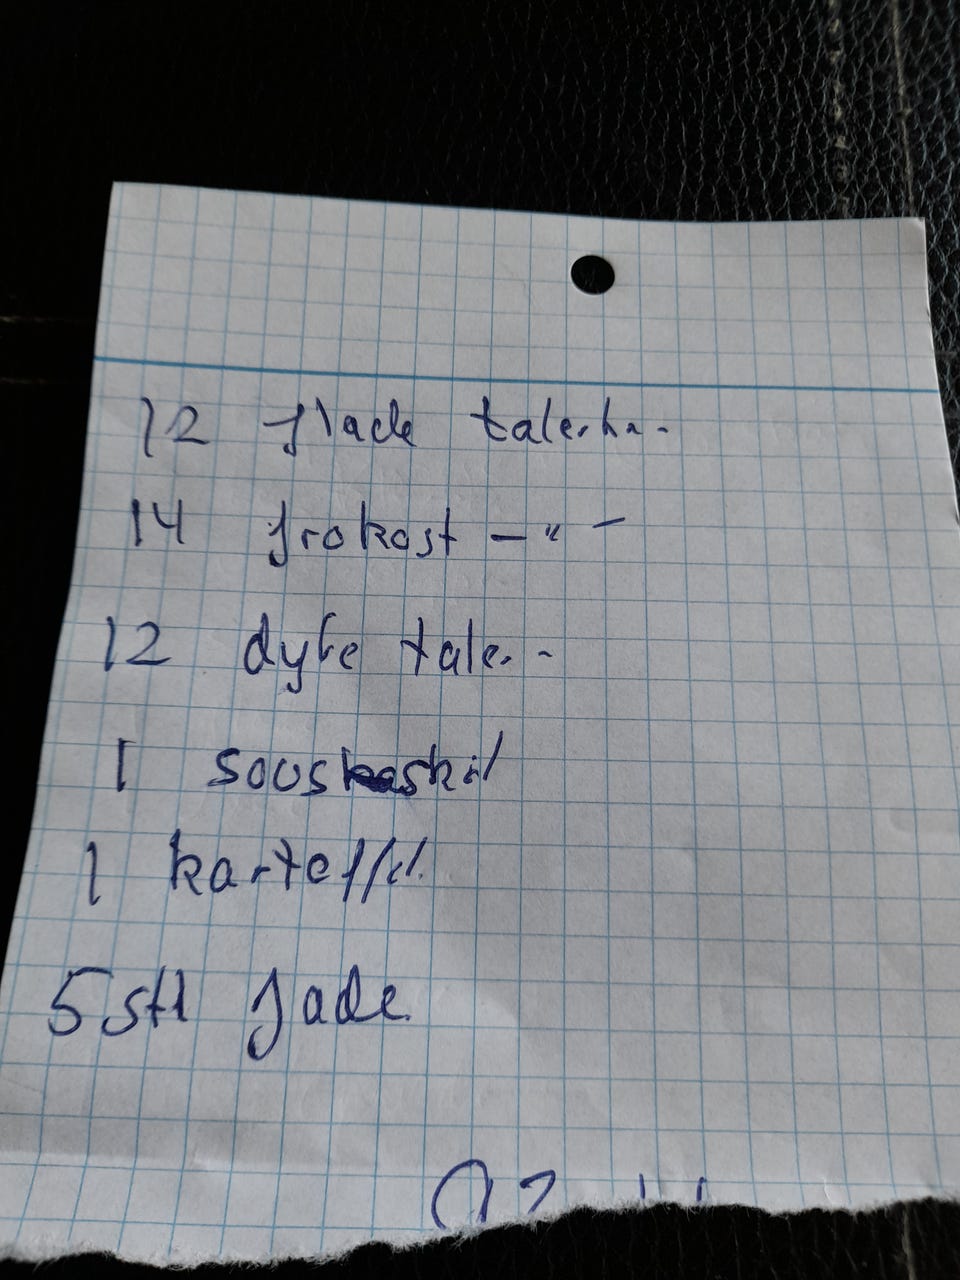 12 flade talerkn.
14 frokost - " -
12 dybe taler -
1 sovskaskål
1 kartoffel
5 stk fade